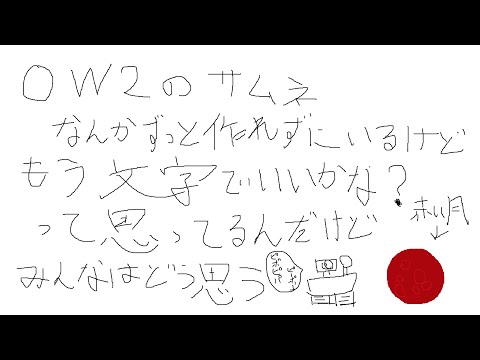 OW2のサムネ
なんかずっと作れずにいるけど
もう文字でいいかな?
って思ってるんだけど
赤い月
みんなはどう思う